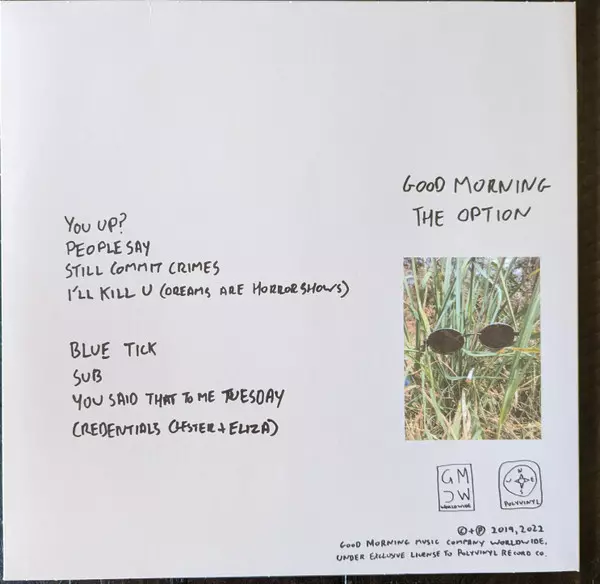 GOOD MORNING
THE OPTION
YOU UP?
PEOPLE SAY
STILL COMMIT CRIMES
I'LL KILL U (DREAMS ARE HORRORSHOWS)
BLUE TICK
SUB
YOU SAID THAT TO ME TUESDAY
CREDENTIALS (LESTER + ELIZA)
GM
JW
WORLDWIDE
N
W E
S
POLYVINYL
©+℗ 2019, 2022
GOOD MORNING MUSIC COMPANY WORLDWIDE,
UNDER EXCLUSIVE LICENSE TO POLYVINYL RECORD CO.